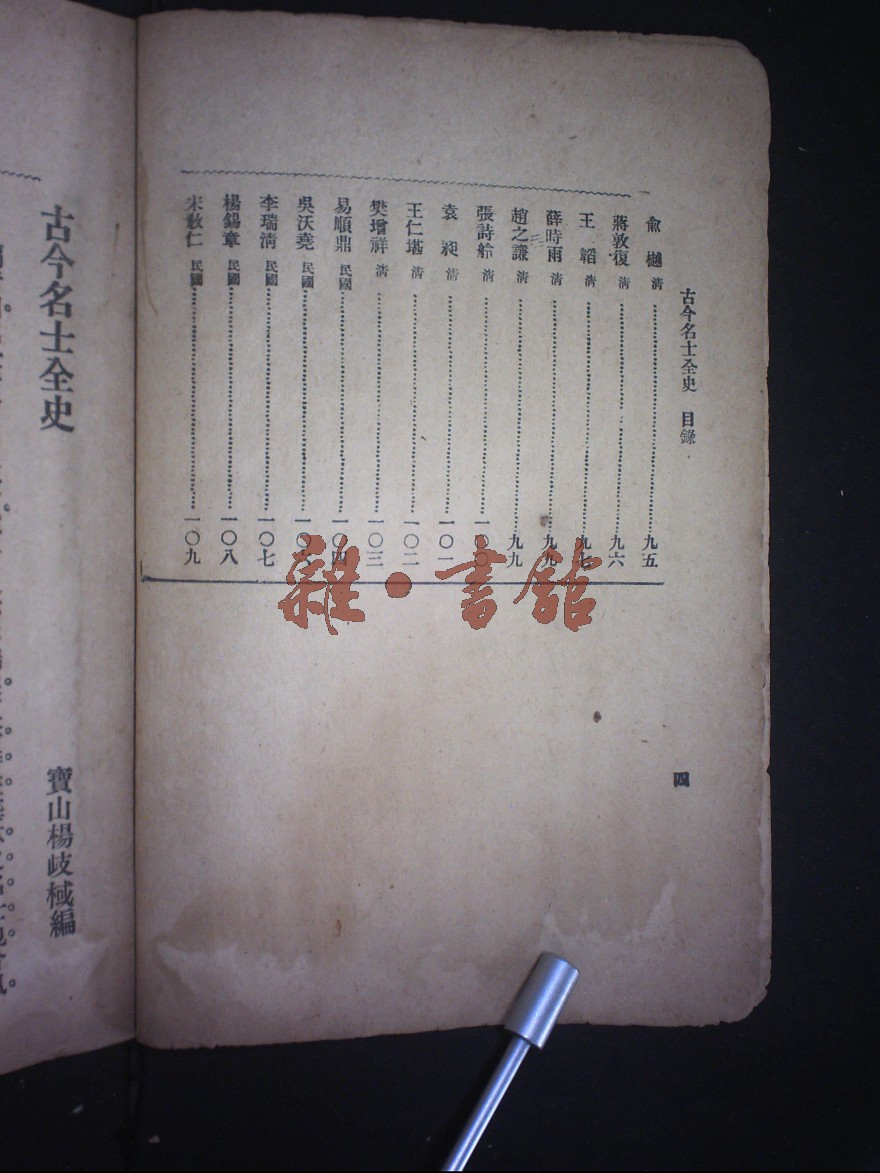 古今名士全史　目錄
俞樾 清 九五
蔣敦復 清 九六
王韜 清 九七
薛時雨 清 九九
趙之謙 清 九九
張詩舲 清 一〇〇
袁昶 清 一〇一
王仁堪 清 一〇二
樊增祥 清 一〇三
易順鼎 民國 一〇四
吳沃堯 民國 一〇
李瑞清 民國 一〇七
楊錫章 民國 一〇八
宋敎仁 民國 一〇九
四
古今名士全史
寶山楊歧棫編
雜·書館